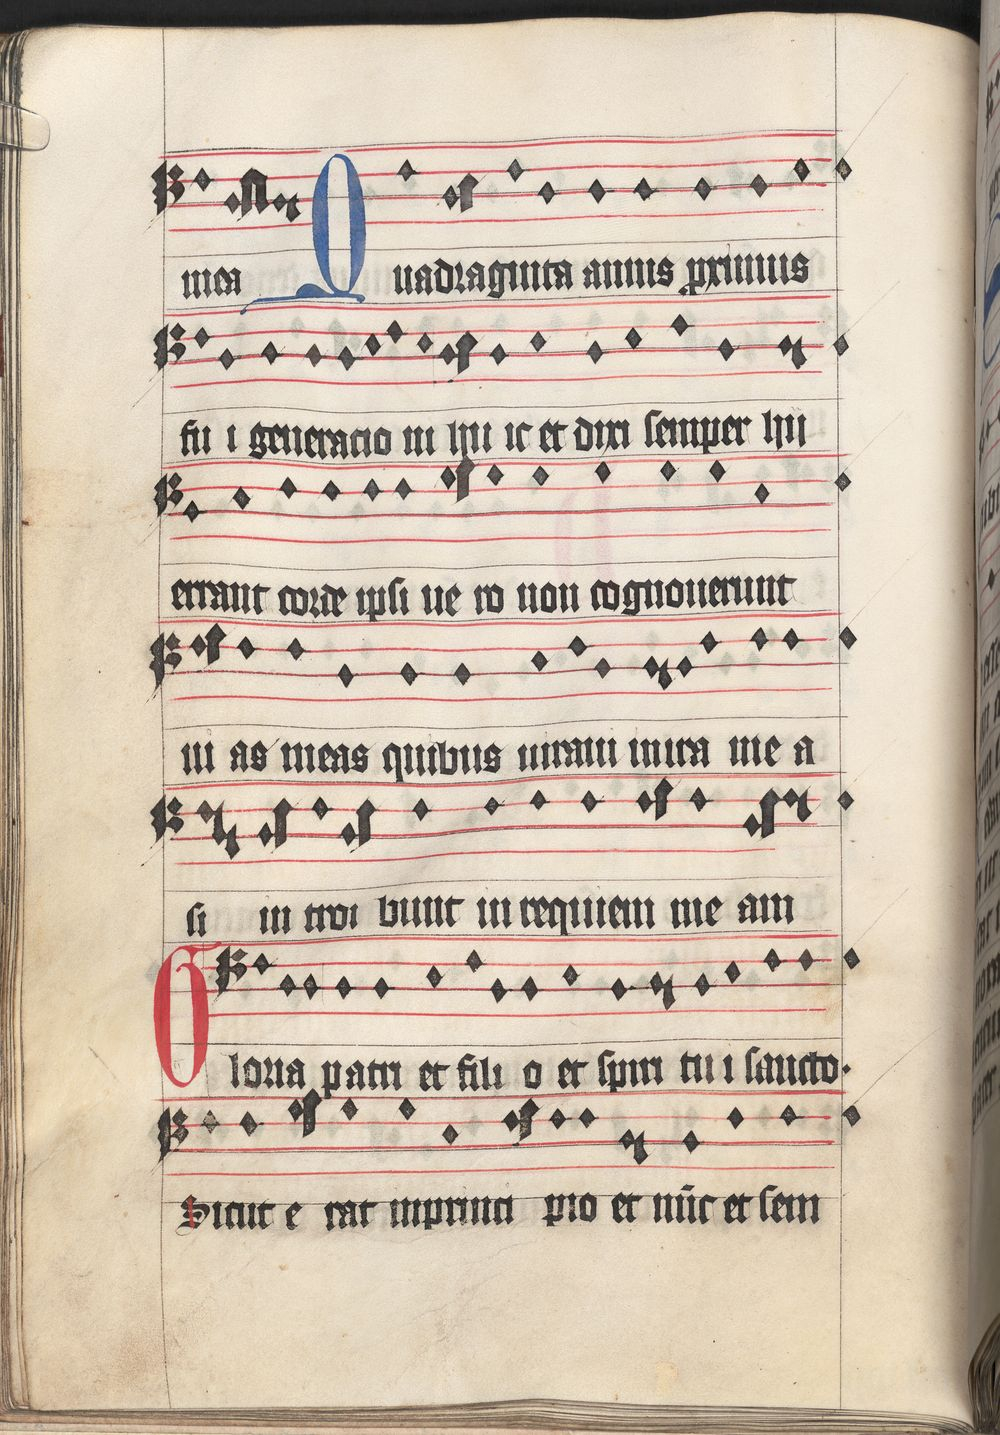 mea Quadraginta annis pximus
fui i generacio ni hui ic et dixi semper hii
errant corde ipsi ue ro non cognouerunt
ui as meas quibus iuraui in ira me a
si in troi bunt in requiem me am
Gloria patri et fili o et spiri tu i sancto.
Sicut e rat inprinci pio et nūc et sem